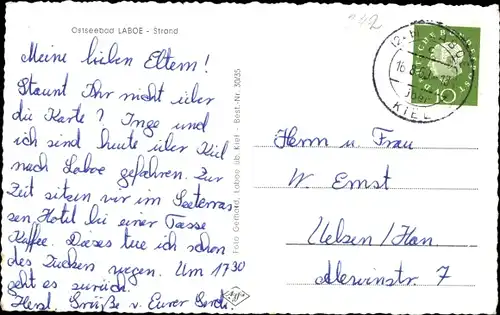 Ostseebad LABOE - Strand
Meine lieben Eltern!
Staunt Ihr nicht über
die Karte? Inge und
ich sind heute über Kiel
nach Laboe gefahren. Zur
Zeit sitzen wir im Seeterras
sen Hotel bei einer Tasse
Kaffee. Dieses tue ich schon
des Zuckers wegen. Um 17 30
geht es zurück.
Herzl. Grüße v. Eurer
Best.-Nr. 30/35
Laboe üb. Kiel
Foto
Herrn u. Frau
W. Ernst
Uelzen/Han.
7
10
KIEL